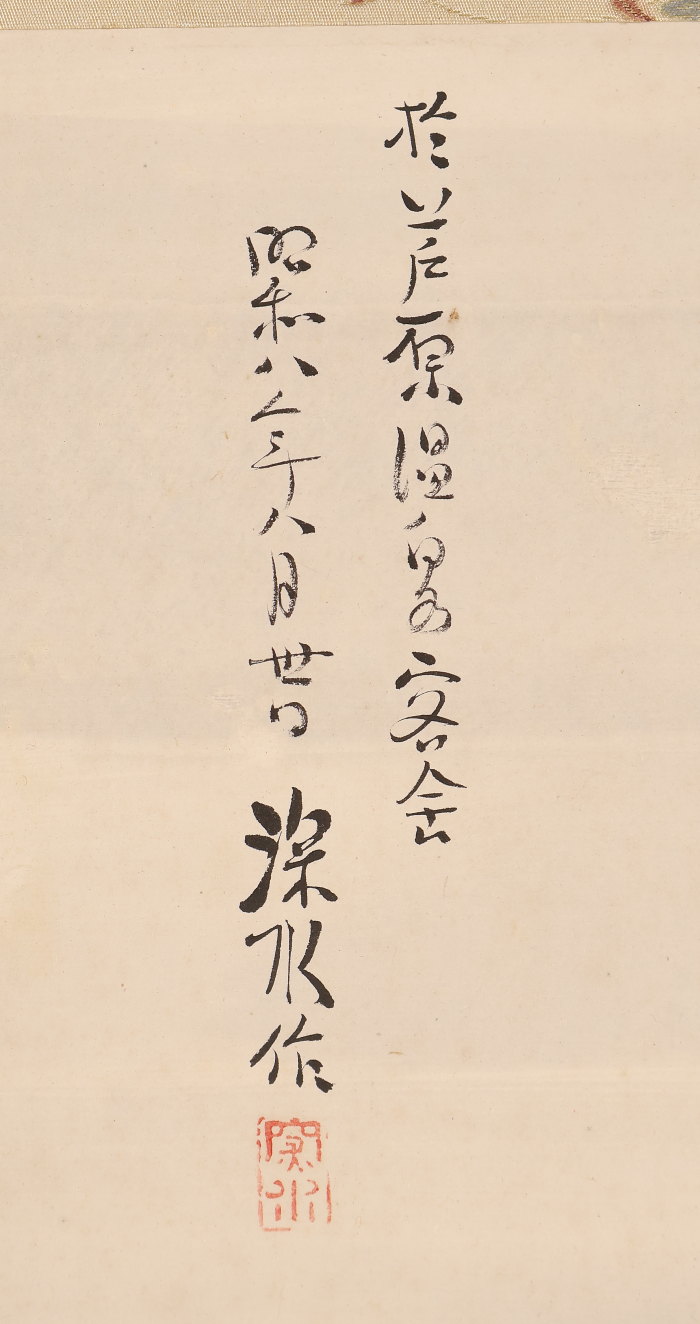 於芦原温泉客舎
昭和八年八月卅日 深水作
深水